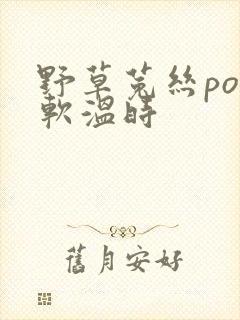 野草菟絲po
軟溫時
舊月安好